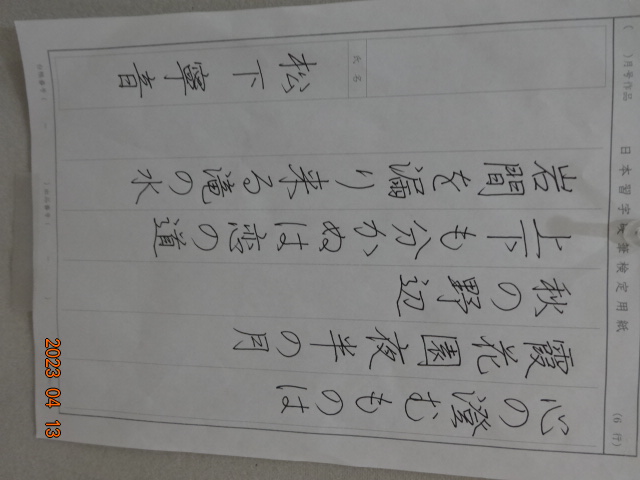 (　)月号作品　日本習字 筆検定用紙　(6 行)
心の澄むものは
霞花園夜半の月
秋の野辺
上下も分かぬは恋の道
岩間を漏り来る滝の水
氏名
松下寧音
2023 04 13